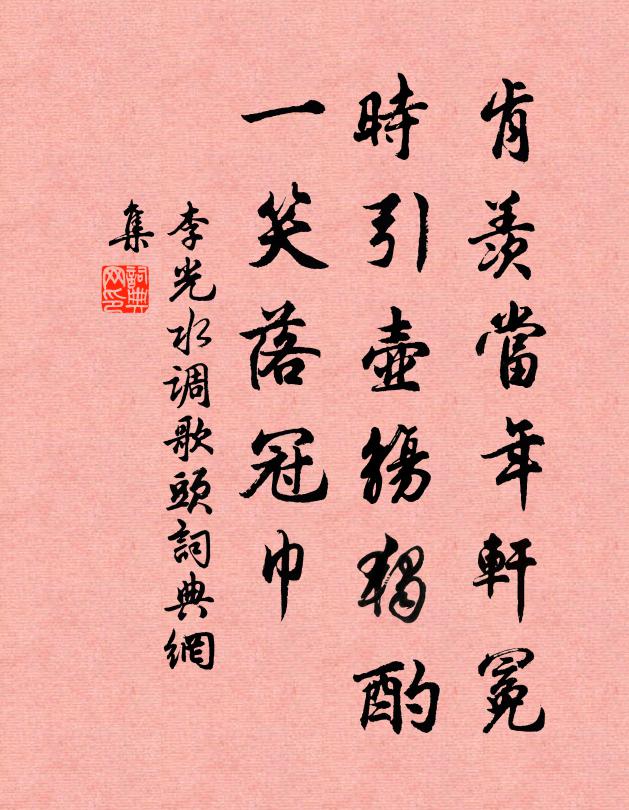 肯羨當年軒冕
時引壺觴獨酌
一笑落冠巾
李光水调歌頭詞典網
集
詞典
网印